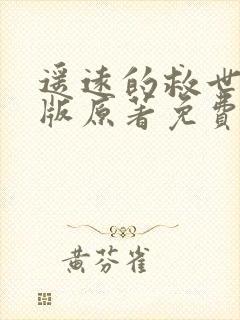 遥远的救世
版原著免费
黄芬雀